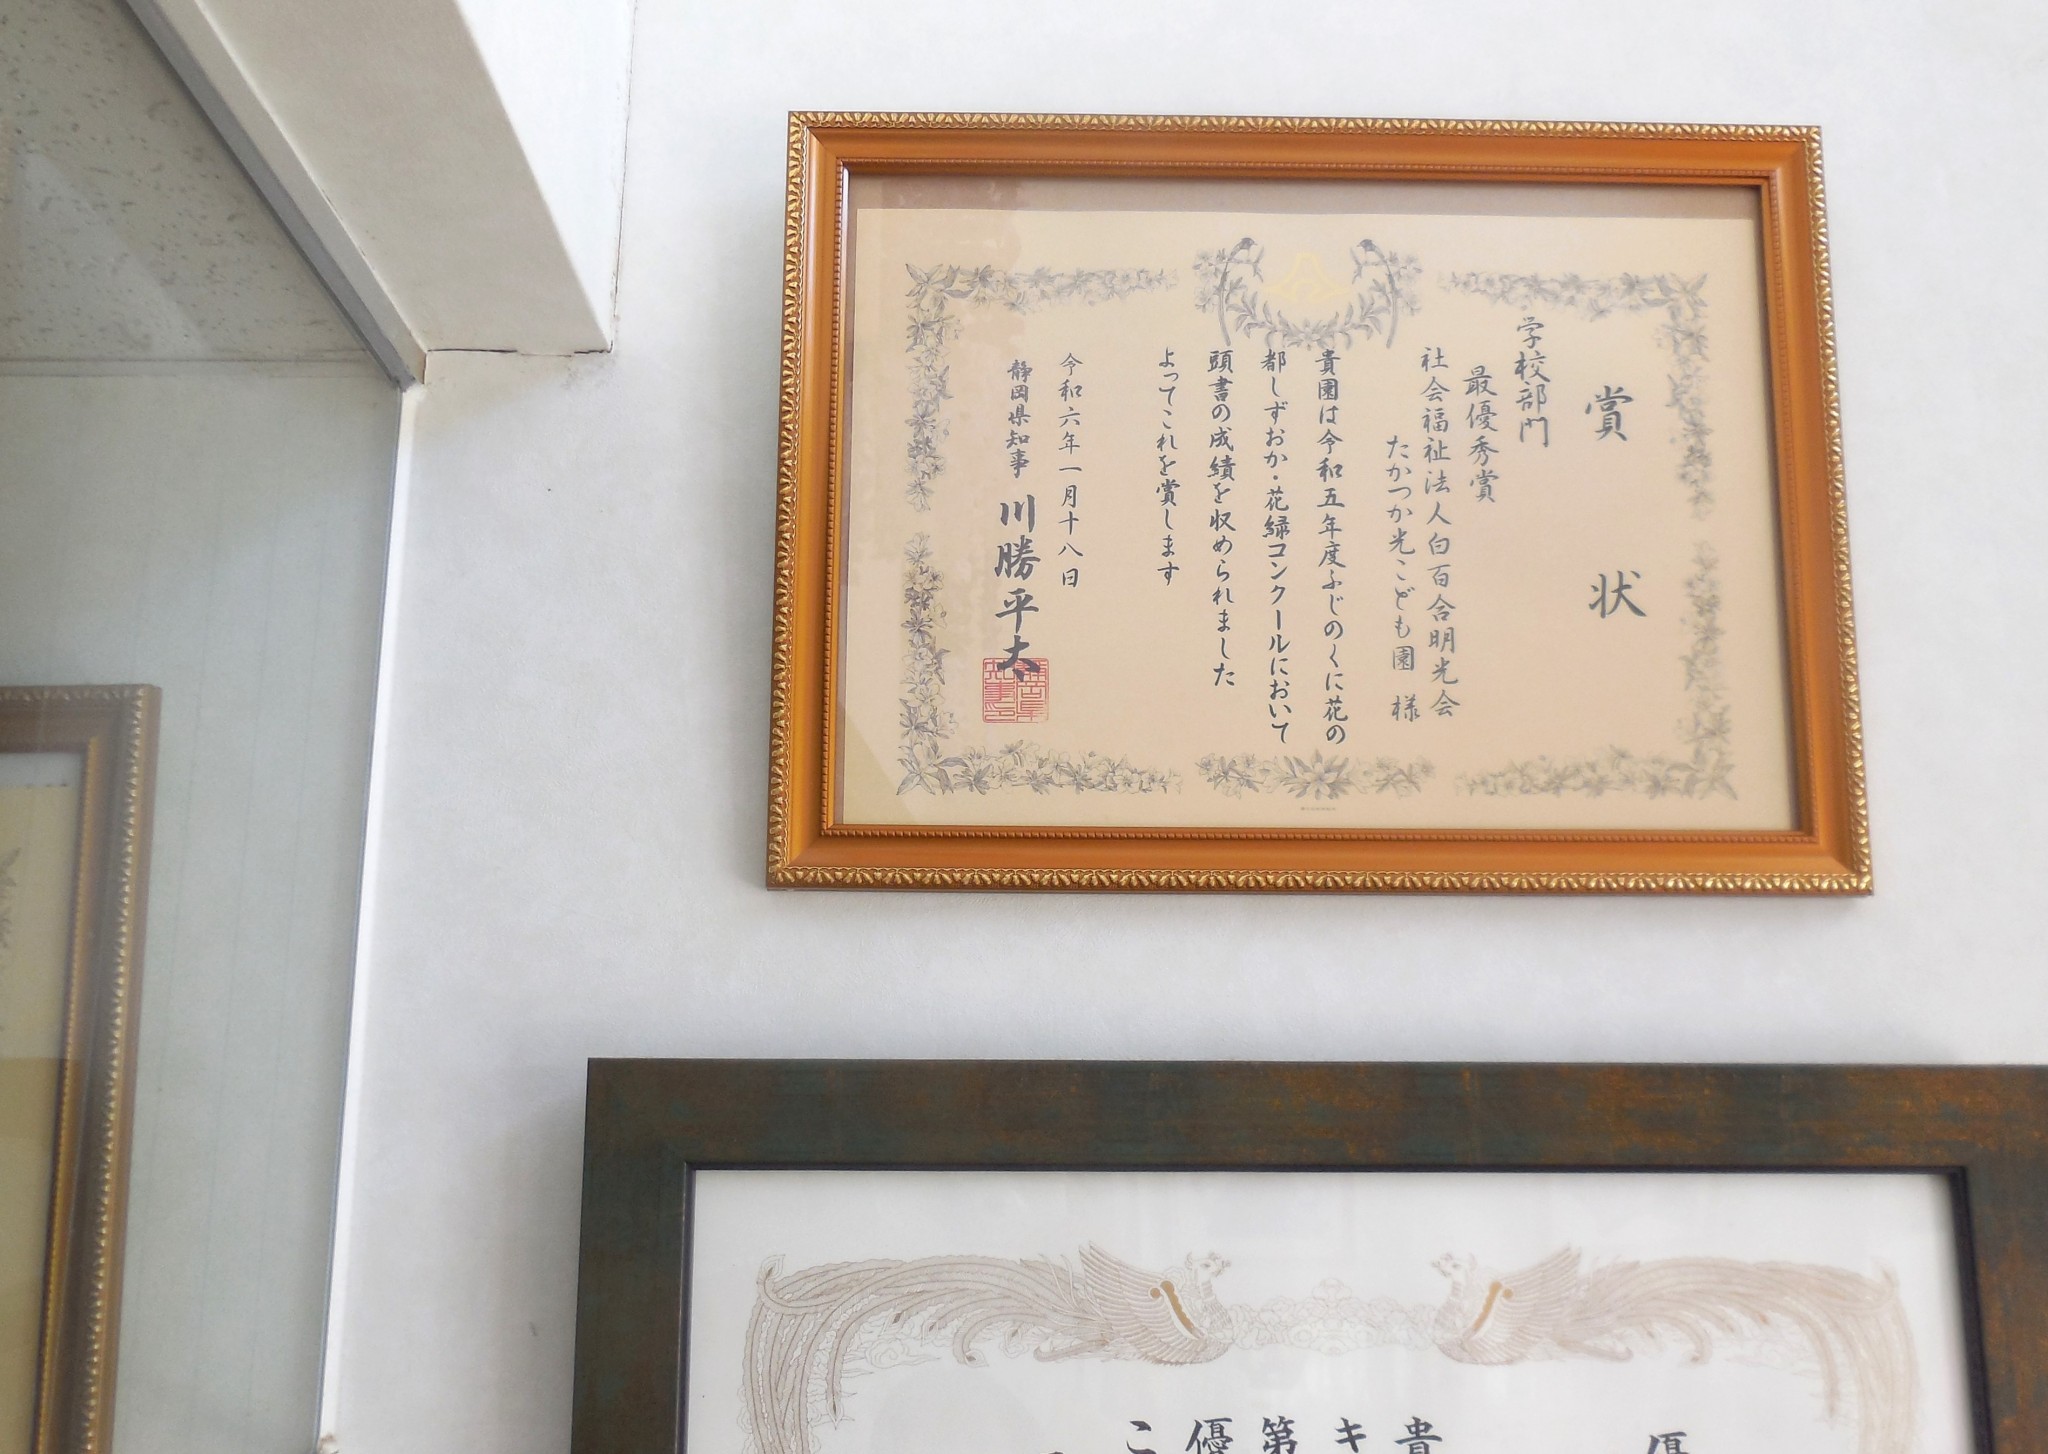 賞状
学校部門
最優秀賞
社会福祉法人白百合明光会
たかつか光こども園 様
貴園は令和五年度ふじのくに花の
都しずおか・花緑コンクールにおいて
頭書の成績を収められました
よってこれを賞します
令和六年一月十八日
静岡県知事 川勝平太
優
貴
キ
第
優
こ